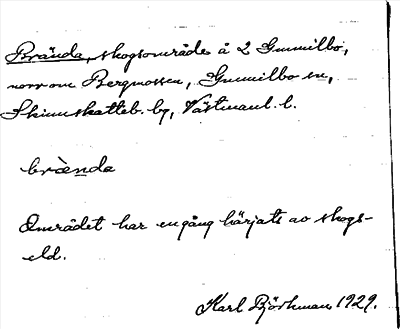 Brända, skogsområde å 2 Gunnilbo,
norr om Bergmossen, Gunnilbo sn,
Skinnskatteb. bg, Västmanl. l.
brænda
Området har en gång härjats av skogs-
eld.
Karl Björkman 1929.